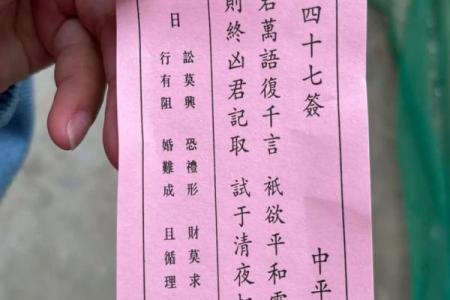 四十七簽 中平
君萬語復千言 祇欲平和
則終凶君記取 試于清夜
日
訟莫興 恐禮形 財莫求
行有阻 婚難成 且循理